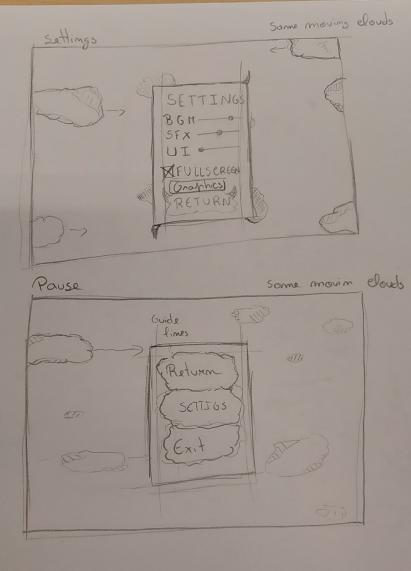 Settings
Some moving clouds
SETTINGS
BGM
SFX
UI
FULLSCREEN
Graphics
RETURN
Pause
Some movin clouds
Guide
lines
Return
SETTIGS
Exit